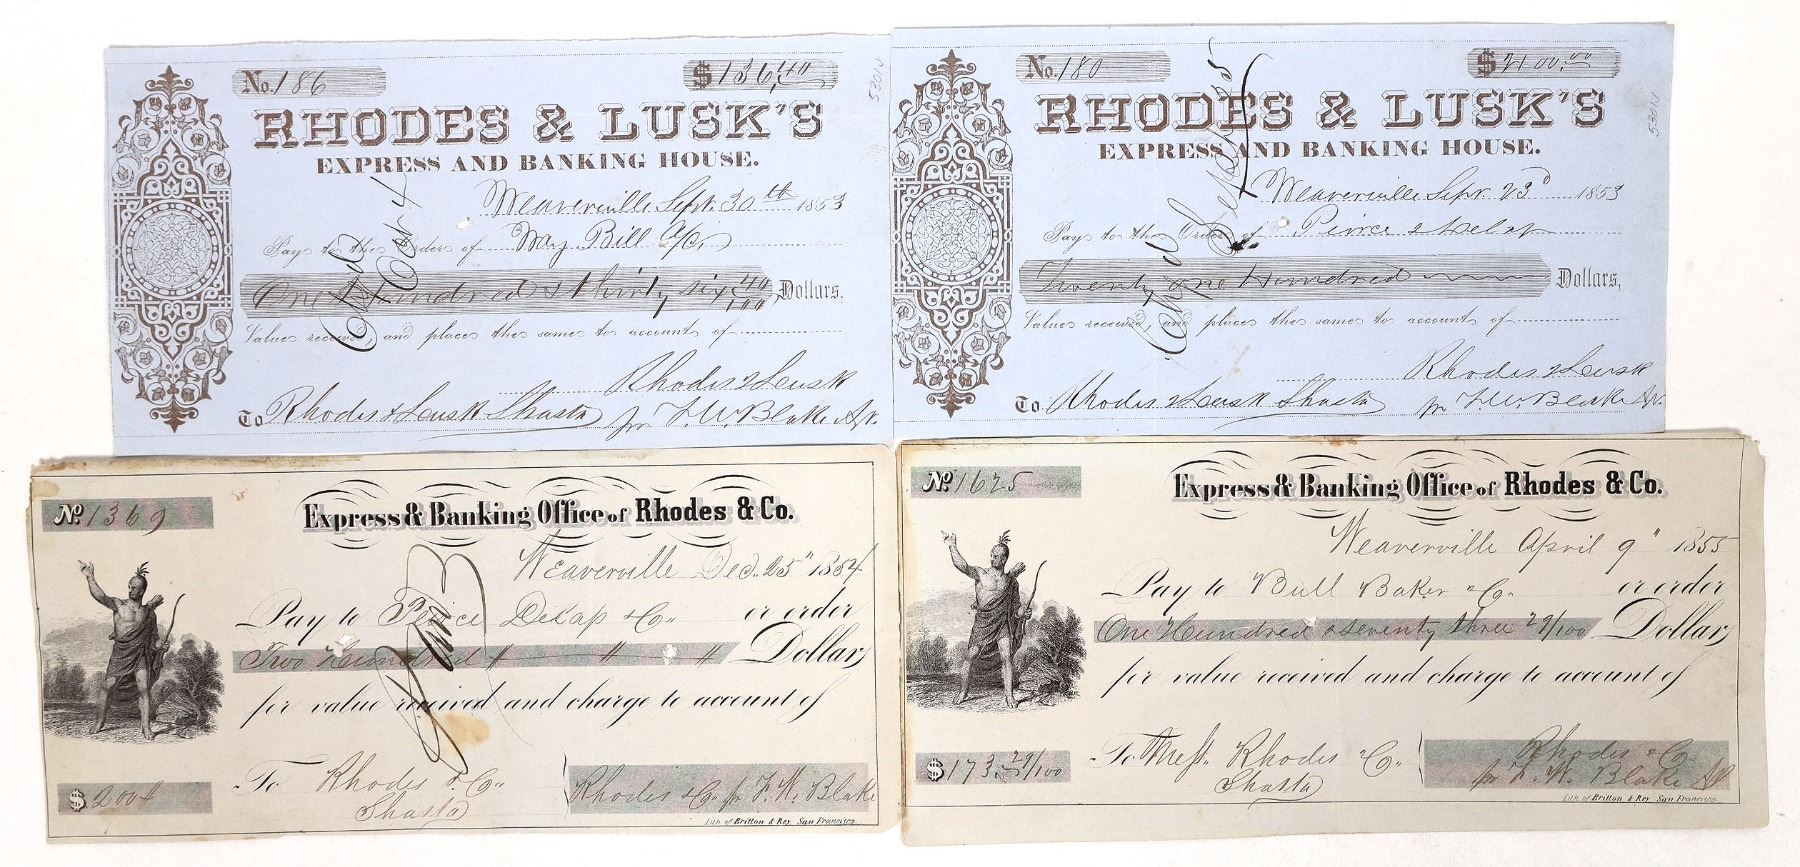 No. 186 $136,40
RHODES & LUSK'S
EXPRESS AND BANKING HOUSE.
Weaverville Sept. 30th 1853
Pay to the Order of Way Bill a/c,
One Hundred & thirty six 40/100 Dollars,
Value received, and place the same to account of
Rhodes & Lusk
To Rhodes & Lusk Shasta pr F. W. Blake Ag.
Oct 4
5301N
No. 180 $2100.00
RHODES & LUSK'S
EXPRESS AND BANKING HOUSE.
Weaverville Sept. 23d 1853
Pay to the Order of Peirce & Delap
Twenty one Hundred Dollars,
Value received, and place the same to account of
Rhodes & Lusk
To Rhodes & Lusk Shasta pr F. W. Blake Ag.
5301N
No. 1369
Express & Banking Office of Rhodes & Co.
Weaverville Dec. 25" 1854
Pay to Peirce Delap & Co. or order
Two Hundred Dollars
for value received and charge to account of
To Rhodes & Co. Rhodes & Co. pr F. W. Blake
$200 Shasta
Lith of Britton & Rey San Francisco.
No. 1625
Express & Banking Office of Rhodes & Co.
Weaverville April 9" 1855
Pay to Bull Baker & Co. or order
One Hundred & seventy three 29/100 Dollars
for value received and charge to account of
$173.29/100 To Messr. Rhodes & Co. Rhodes & Co.
Shasta pr F. W. Blake Ag
Lith of Britton & Rey San Francisco.